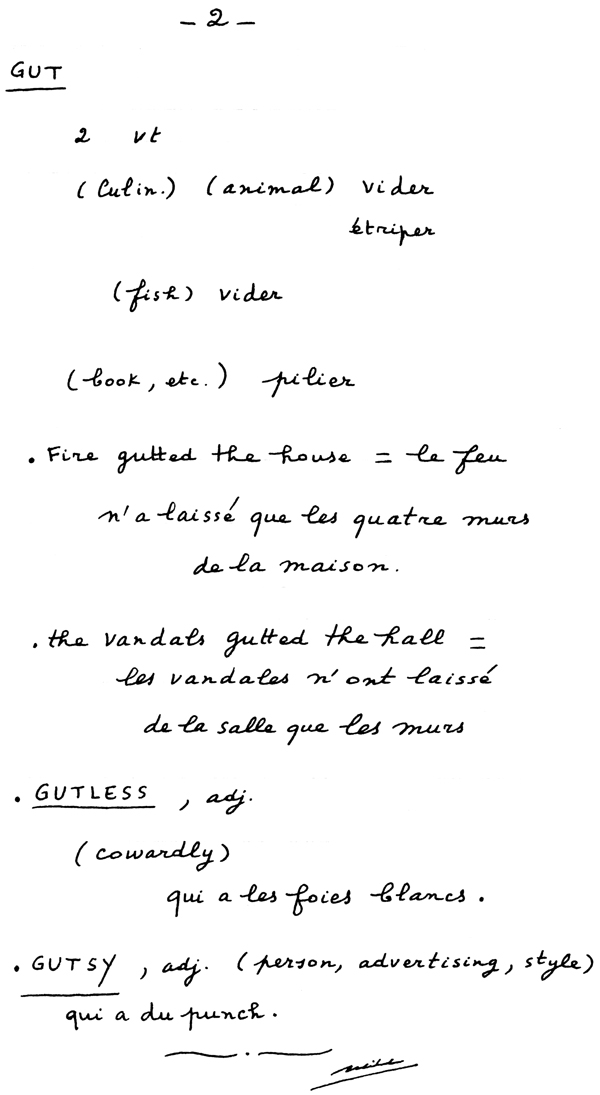 - 2 -
GUT
2 vt
(Culin.) (animal) vider
étriper
(fish) vider
(book, etc.) pilier
. Fire gutted the house = le feu
n'a laissé que les quatre murs
de la maison.
. the vandals gutted the hall =
les vandales n'ont laissé
de la salle que les murs
. GUTLESS , adj.
(cowardly)
qui a les foies blancs.
. GUTSY , adj. (person, advertising, style)
qui a du punch.